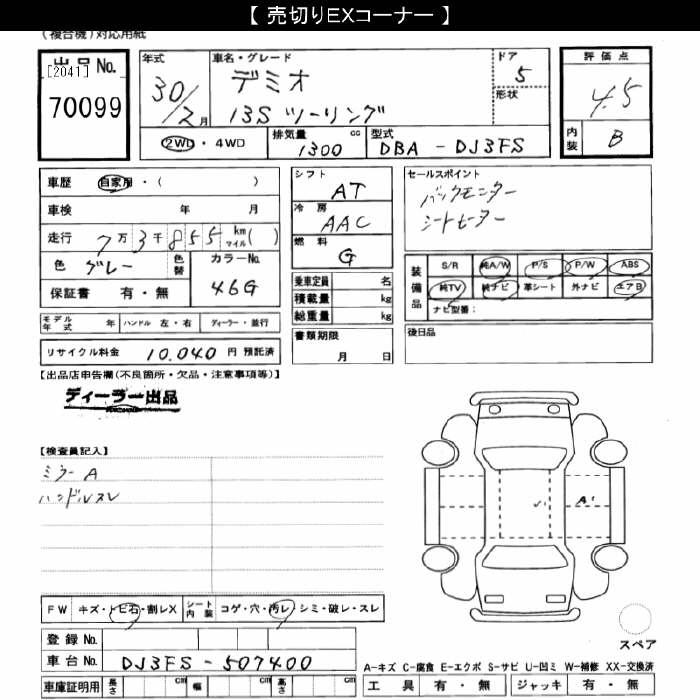 【 売切りEXコーナー 】
(複合機)対応用紙
出品No.
[2041]
70099
年式
30/2月
車名・グレード
デミオ
13S ツーリング
ドア
5
形状
評価点
4.5
内装
B
2WD・4WD
排気量 cc
1300
型式
DBA - DJ3FS
車歴 自家用・( )
車検 年 月
走行 7万3千855 km マイル( )
色 グレー 色替
カラーNo.
46G
保証書 有・無
シフト
AT
冷房
AAC
燃料
G
乗車定員 名
積載量 kg
総重量 kg
書類期限
月 日
セールスポイント
バックモニター
シートヒーター
装備品
S/R 純A/W P/S P/W ABS
純TV 純ナビ 革シート 外ナビ エアB
ナビ型番:
後日品
モデル年式 年 ハンドル 左・右 ディーラー・並行
リサイクル料金 10,040 円 預託済
【出品店申告欄(不良箇所・欠品・注意事項等)】
ディーラー出品
【検査員記入】
ミラーA
ハンドルスレ
A1
FW キズ・トビ石・割レX シート内装 コゲ・穴・汚レ・シミ・破レ・スレ
登録No.
車台No. DJ3FS - 507400
車庫証明用 長さ cm 幅 cm 高さ cm
スペア
A-キズ C-腐食 E-エクボ S-サビ U-凹ミ W-補修 XX-交換済
工具 有・無 ジャッキ 有・無